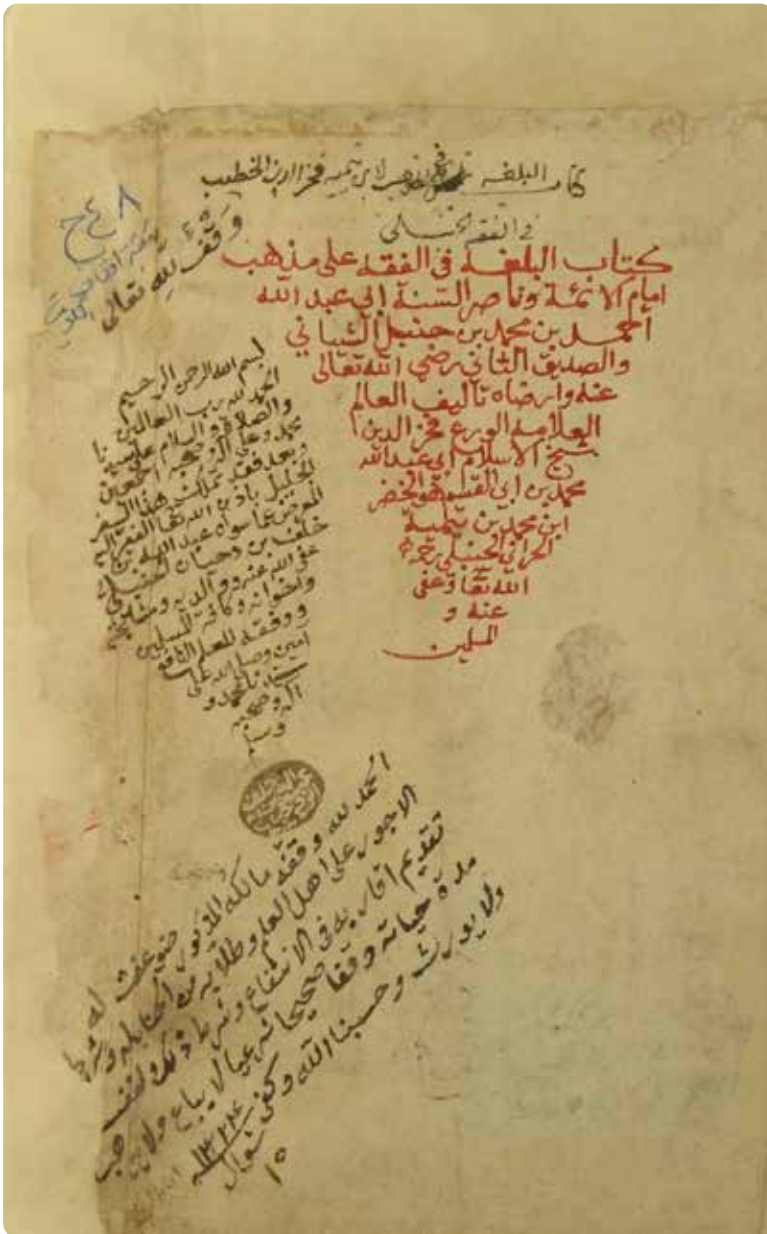 كتاب البلغة في مذهب لابن تيميه فخر الدين الخطيب
في الفقه الحنبلي
٨ ٤ خ
وقف لله تعالى
كتاب البلغة في الفقه على مذهب
امام الائمة وناصر السنة ابي عبد الله
احمد بن محمد بن حنبل الشيباني
والصديق الثاني رضي الله تعالى
عنه وارضاه تاليف العالم
العلامه الورع فخر الدين
شيخ الاسلام ابي عبد الله
محمد بن ابي القسم هو الخضر
ابن محمد بن تيمية
الحراني الحنبلي رحمه
الله تعا وعفى
عنه و
المسلمين
بسم الله الرحمن الرحيم
الحمد لله رب العالمين
والصلاة والسلام على نبينا
محمد وعلى اله وصحبه اجمعين
وبعد فقد تملكت هذا السفر
الجليل باذن الله تعا الفقير اليه
المعرض عما سواه عبد الله بن
خلف بن دحيان الحنبلي
عفى الله عنه ووالديه ومشايخه
واخوانه وكافة المسلمين
ووفقه للعلم النافع
امين وصلى الله على
سيدنا محمد و
اله وصحبه
وسلم
الحمد لله وقفه مالكه المذكور ضوعفت له
الاجور على اهل العلم وطلابه من الحنابلة وشرط
تقديم اقاربه في الانتفاع وشرط ذلك لنفسه
مدة حياته وقفا صحيحا شرعيا لا يباع ولا يوهب
ولا يورث وحسبنا الله وكفى
١٣٢٤
١٥ شوال